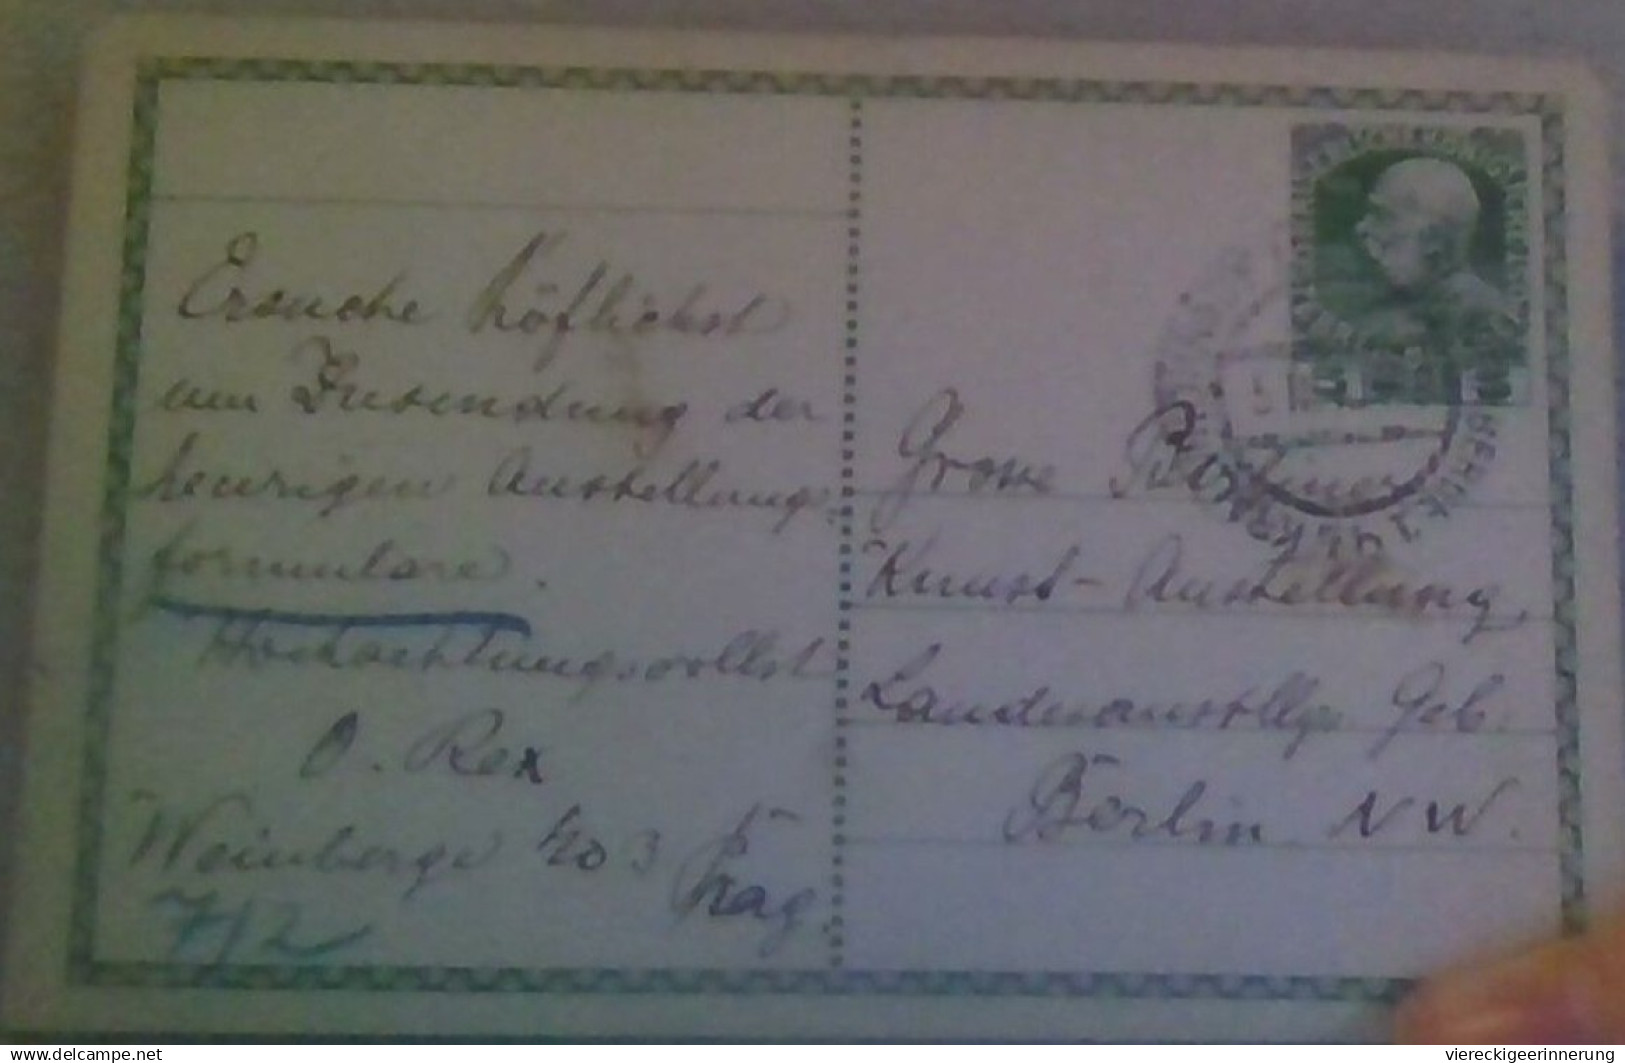 Ersuche höflichst
um Zusendung der
heurigen Ausstellungs
formulare.
Hochachtungsvollst
O. Rex
Weinberge 3 Prag
7/2
Grosse Berliner
Kunst-Ausstellung
Landesausstllgs Geb.
Berlin NW.
www.delcampe.net
viereckigeerinnerung